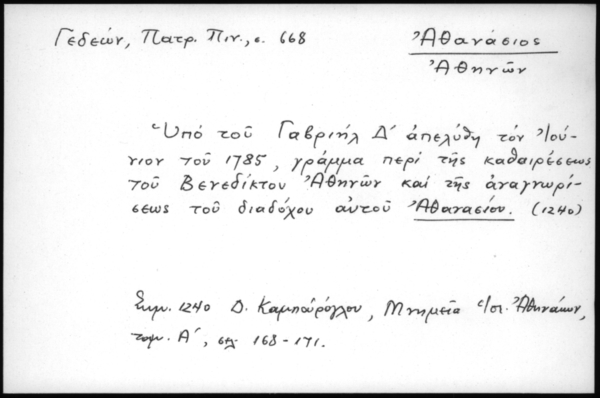 Γεδεών, Πατρ. Πιν., σ. 668
Ἀθανάσιος
Ἀθηνῶν
Ὑπό τοῦ Γαβριήλ Δ΄ ἀπελύθη τόν Ἰού-
νιον τοῦ 1785, γράμμα περί τῆς καθαιρέσεως
τοῦ Βενεδίκτου Ἀθηνῶν καί τῆς ἀναγνωρί-
σεως τοῦ διαδόχου αὐτοῦ Ἀθανασίου. (1240)
Σημ. 1240 Δ. Καμπούρογλου, Μνημεῖα Ἱστ. Ἀθηναίων,
τομ. Α΄, σελ. 168-171.